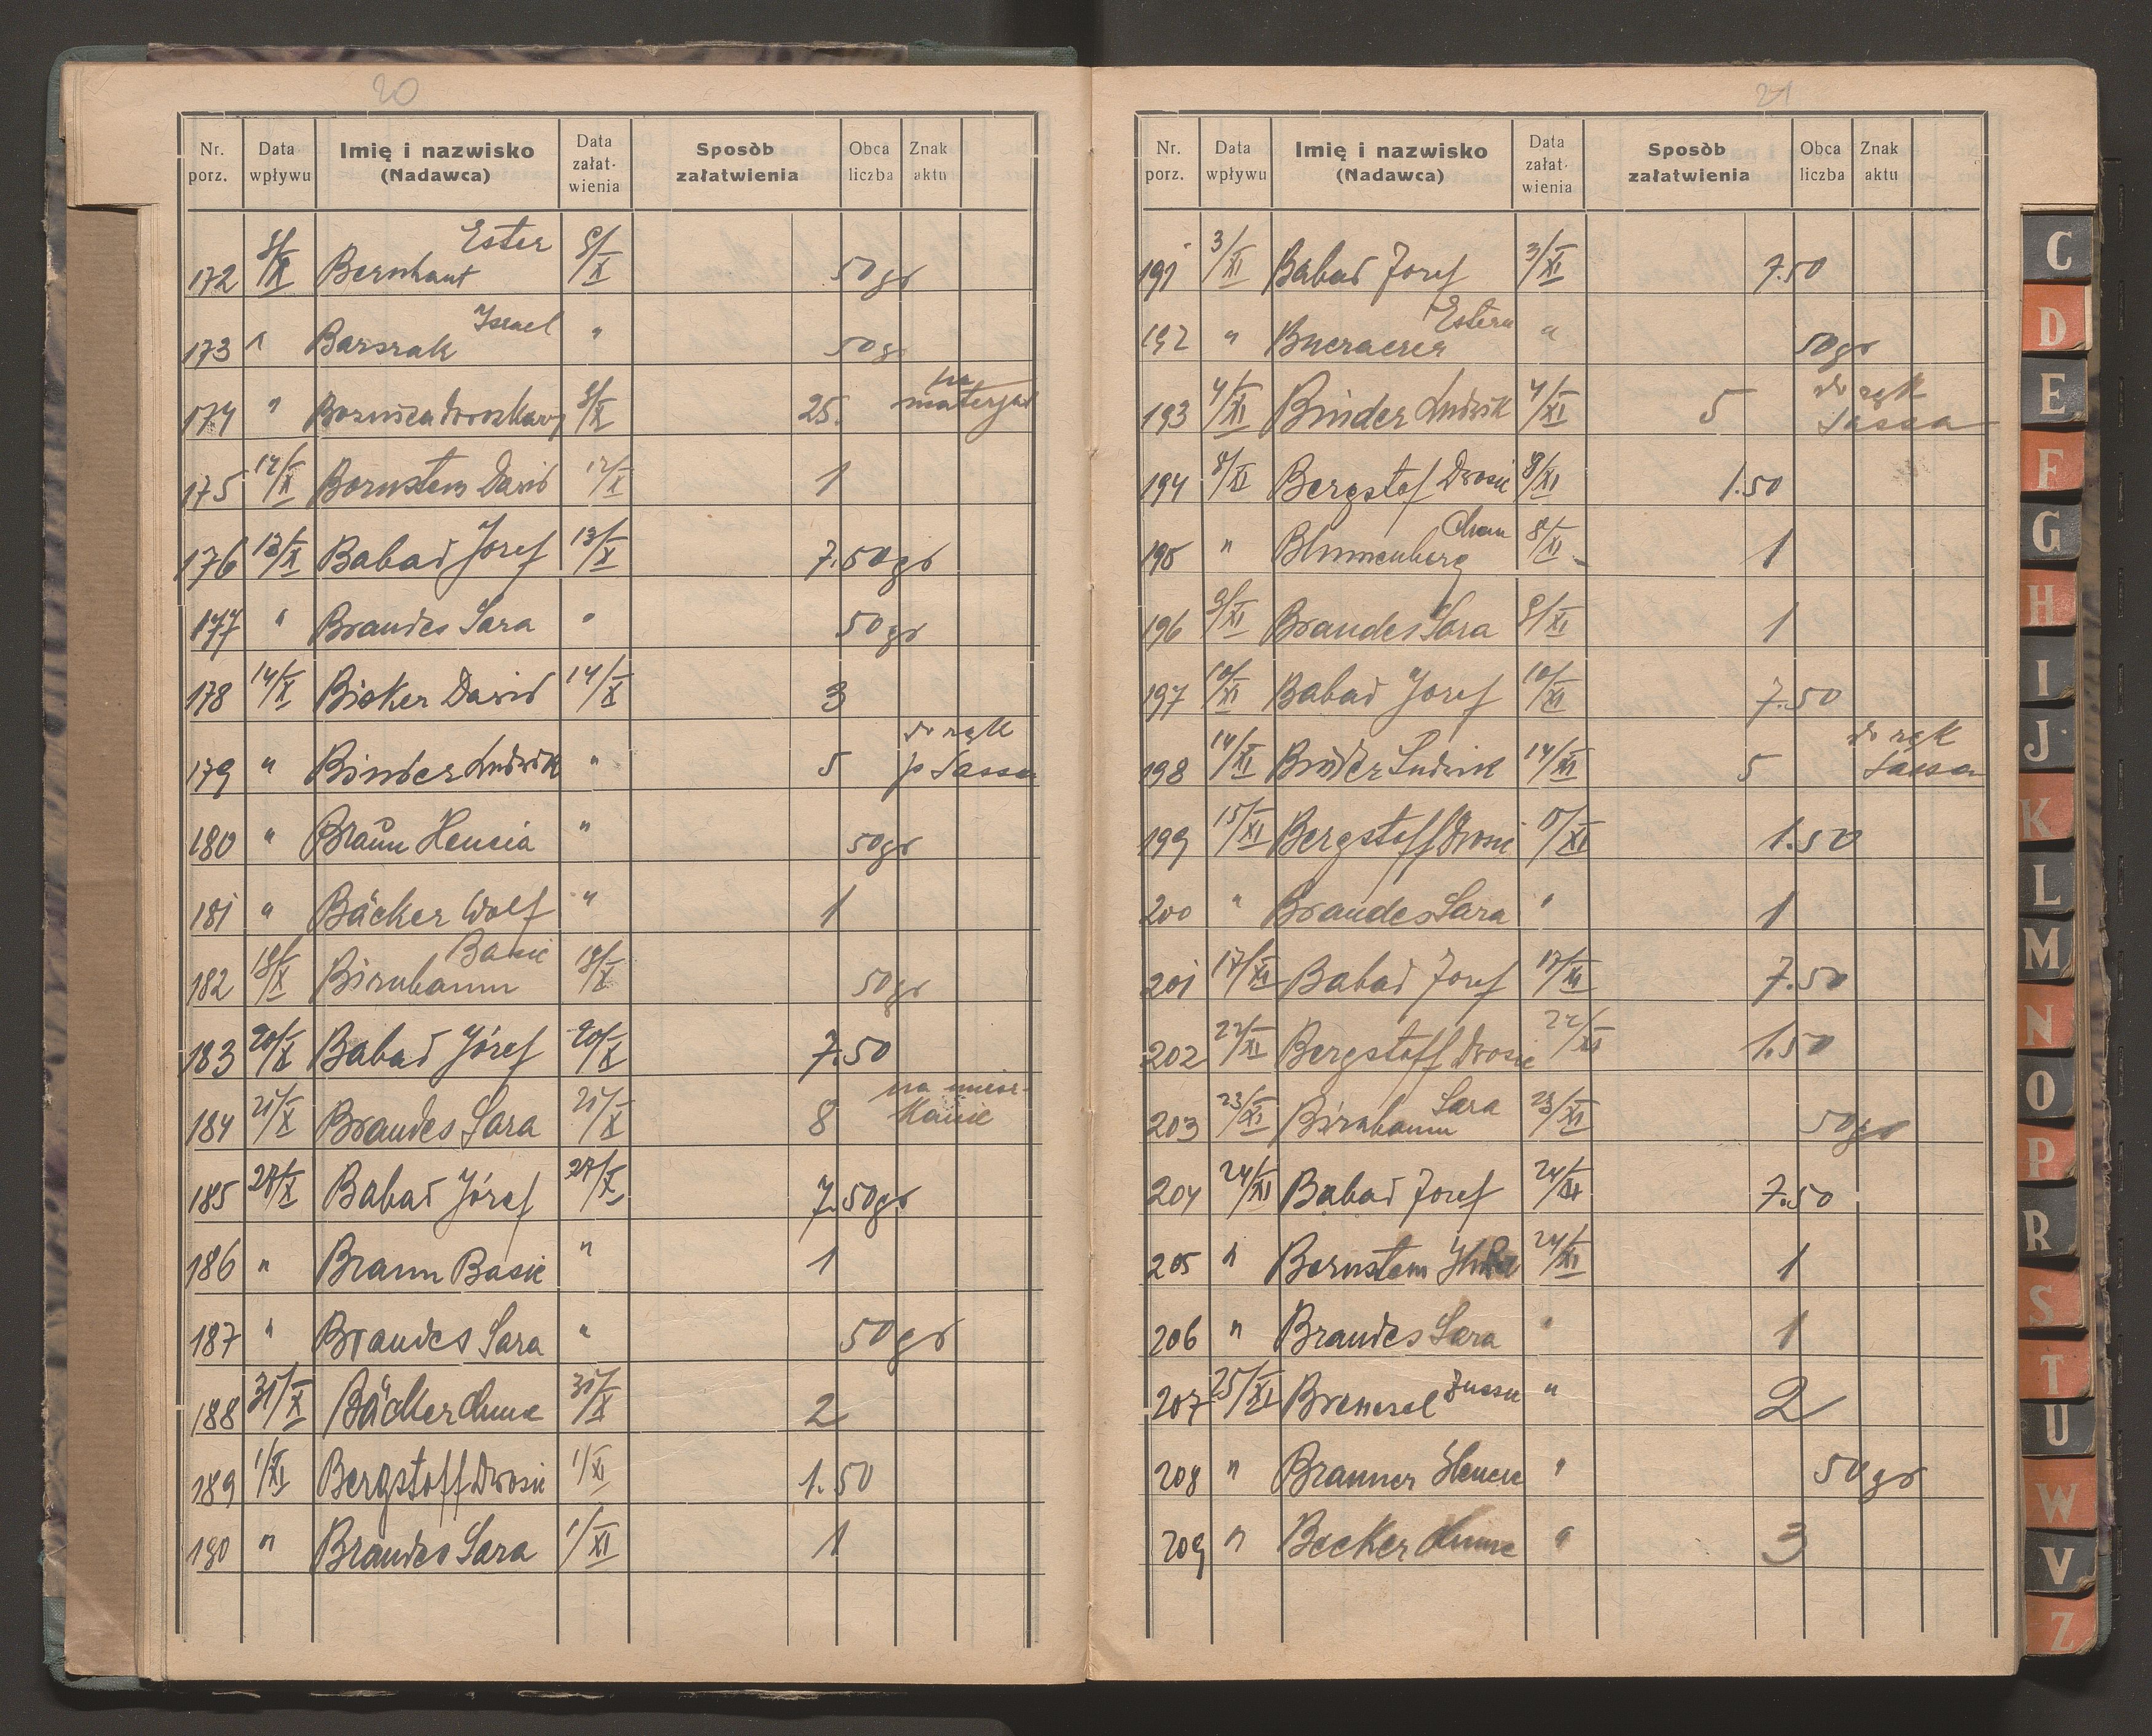 20
Nr. porz. Data wpływu Imię i nazwisko (Nadawca) Data załat-wienia Sposòb załatwienia Obca liczba Znak aktu
172 8/X Bernhaut Ester 8/X 50 gr
173 " Barsrak Israel " 50 gr
174 " 8/X 25. na materjał
175 12/X Bornstein Dawid 12/X 1
176 13/X Babad Józef 13/X 7.50 gr
177 " Brandes Sara " 50 gr
178 14/X Bicker Dawid 14/X 3
179 " Binder Ludwik " 5 do rąk p Sassa
180 " Braun Hencia " 50 gr
181 " Bäcker Wolf " 1
182 18/X Birnbaum Basie 18/X 50 gr
183 20/X Babad Józef 20/X 7.50
184 21/X Brandes Sara 21/X 8 na miesz-kanie
185 27/X Babad Józef 27/X 7.50 gr
186 " Braun Basie " 1
187 " Brandes Sara " 50 gr
188 31/X Bäcker Chune 31/X 2
189 1/XI Bergstoff Drosie 1/XI 1.50
180 " Brandes Sara 1/XI 1
21
Nr. porz. Data wpływu Imię i nazwisko (Nadawca) Data załat-wienia Sposòb załatwienia Obca liczba Znak aktu
191 3/XI Babad Jozef 3/XI 7.50
192 " Estera " 50 gr
193 4/XI Binder Ludwik 4/XI 5 do rąk Sassa
194 8/XI Bergstof Drosie 8/XI 1.50
195 " Blumenberg Chan 8/XI 1
196 9/XI Brandes Sara 9/XI 1
197 10/XI Babad Jozef 10/XI 7.50
198 14/XI Binder Ludwik 14/XI 5 do rąk Sassa
199 15/XI Bergstoff Drosie 15/XI 1.50
200 " Brandes Sara " 1
201 17/XI Babad Jozef 17/XI 7.50
202 22/XI Bergstoff Drosie 22/XI 1.50
203 23/XI Birnbaum Sara 23/XI 50 gr
204 24/XI Babad Jozef 24/XI 7.50
205 " Bernstein 24/XI 1
206 " Brandes Sara " 1
207 25/XI " 2
208 " Brauner Hencie " 50 gr
209 " Becker Chune " 3
C
D
E
F
G
H
I
J
K
L
M
N
O
P
R
S
T
U
W
V
Z